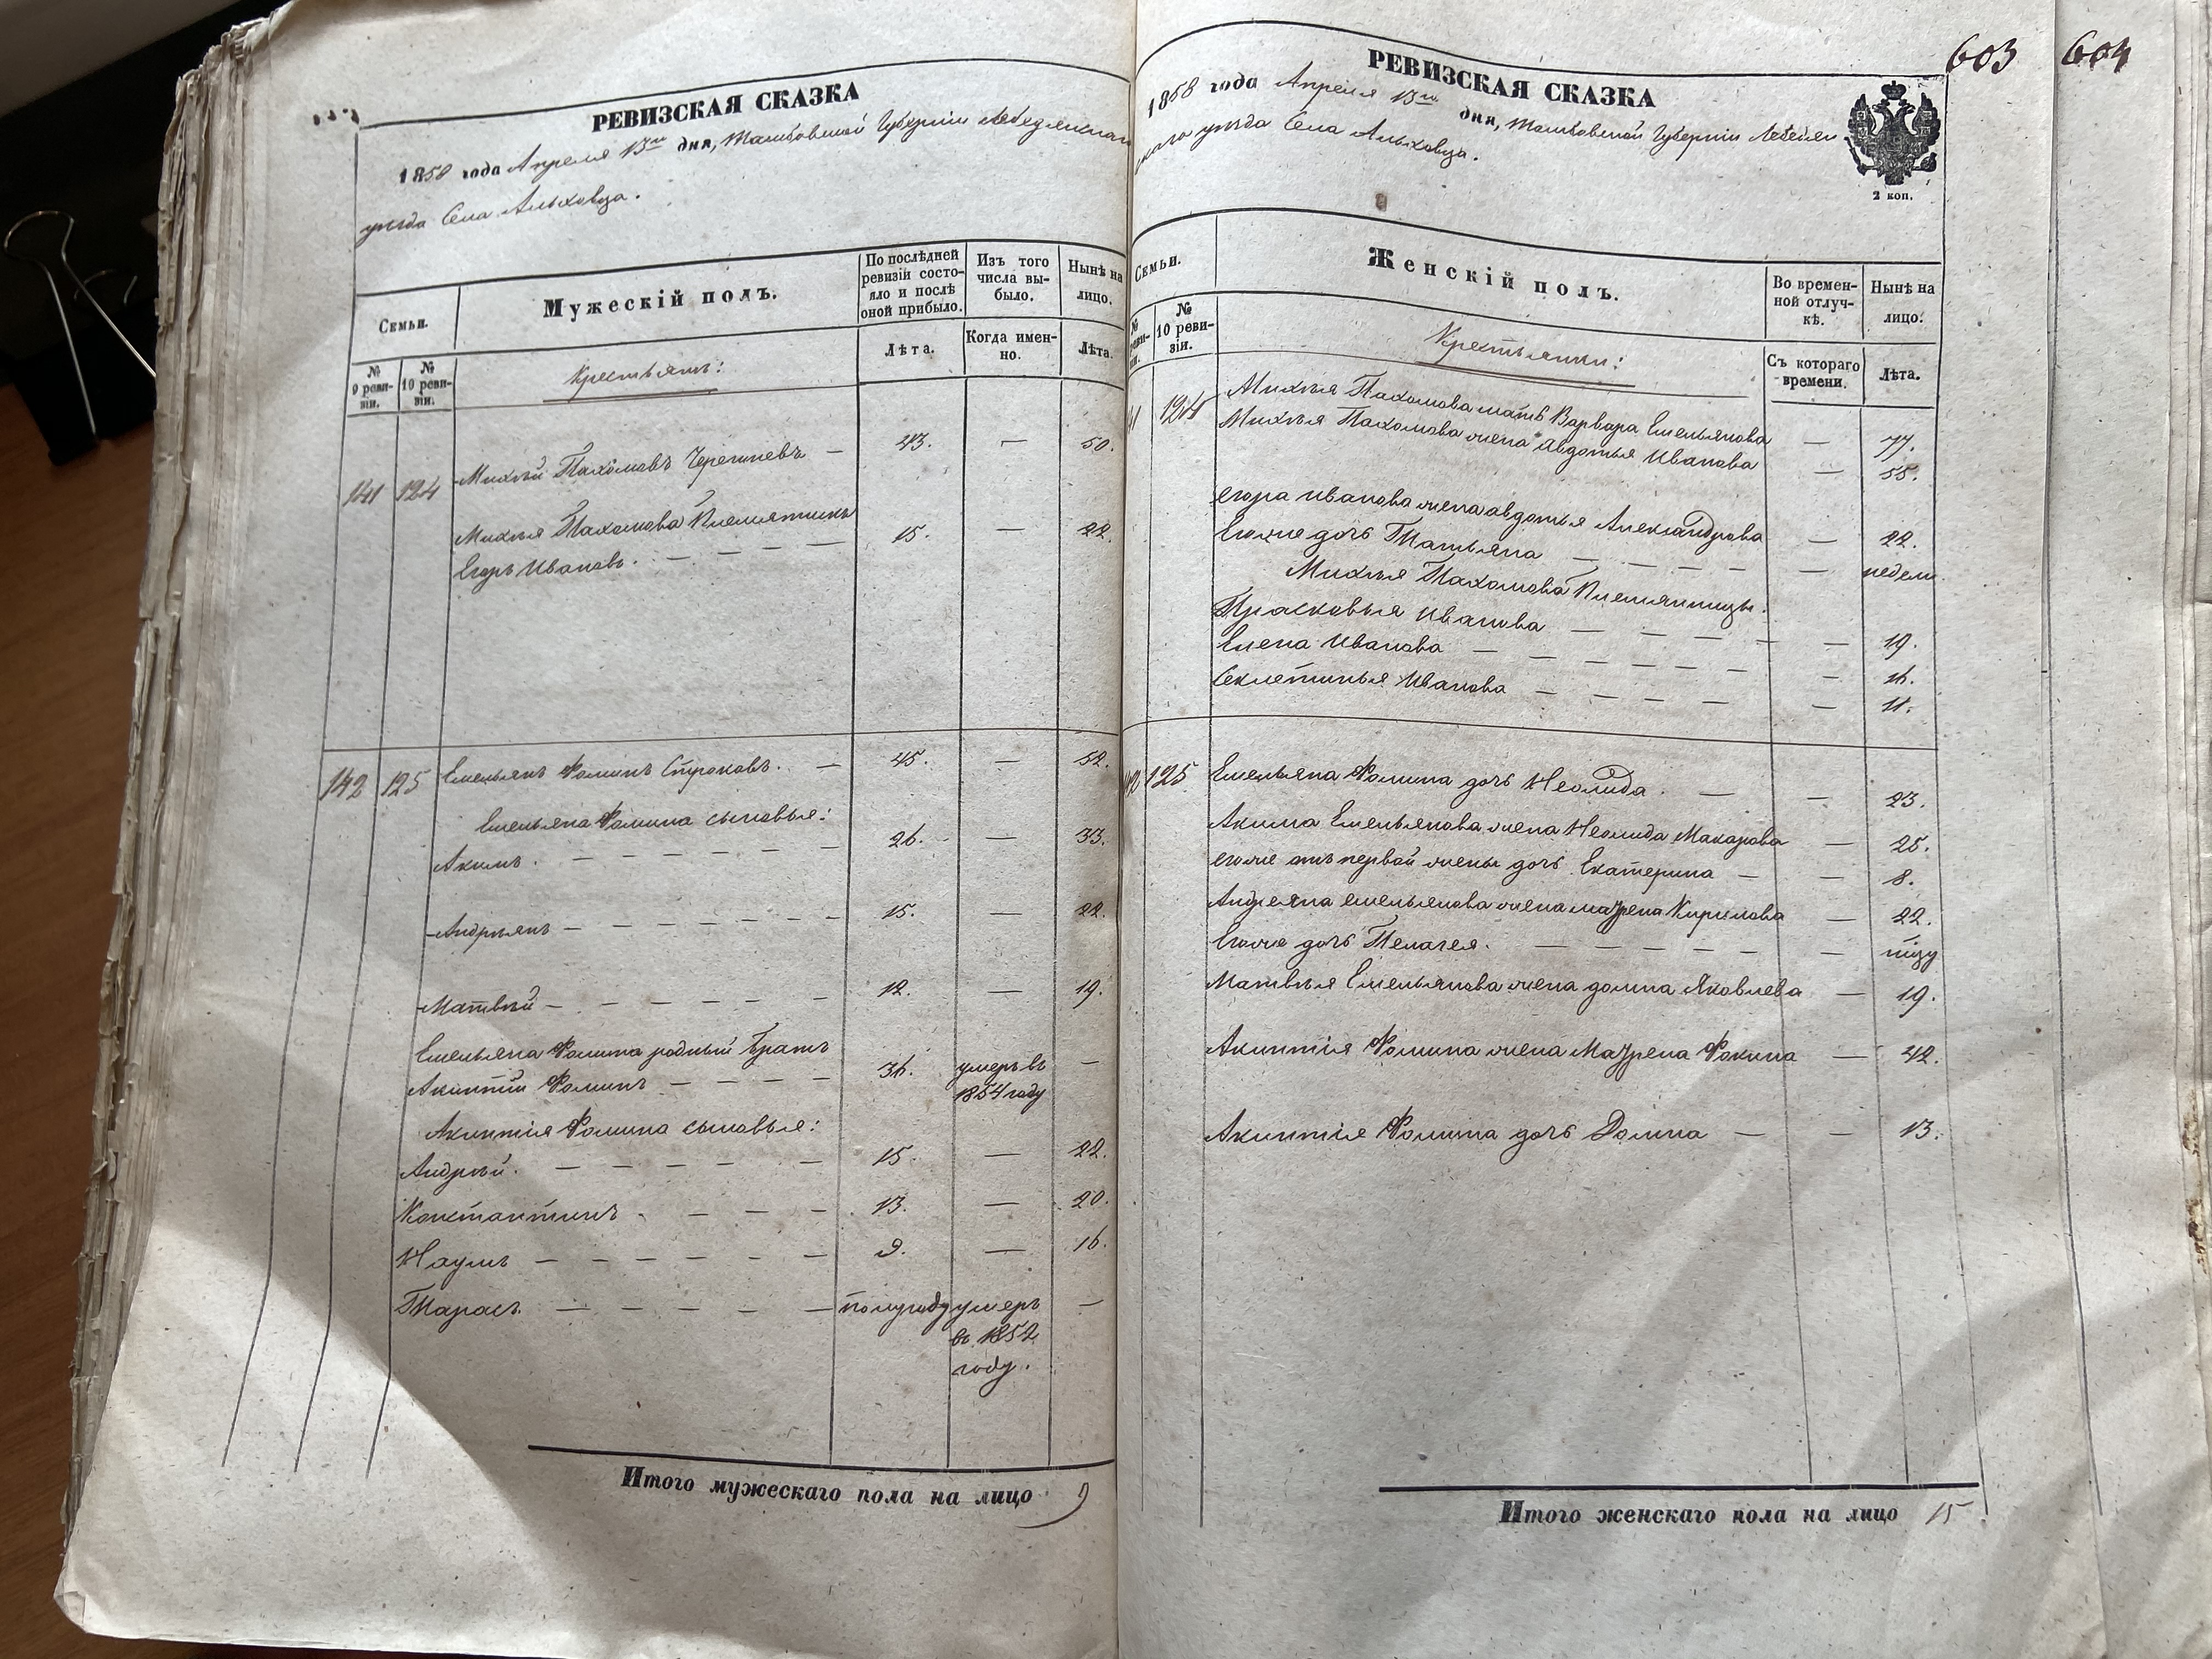 РЕВИЗСКАЯ СКАЗКА
1858 года Апреля 13го дня, Тамбовской Губерніи Лебедянскаго
уѣзда Села Альховца.
Семьи.
Мужескій полъ.
По послѣдней ревизіи состояло и послѣ оной прибыло.
Изъ того числа выбыло.
Нынѣ на лицо.
№ 9 ревизіи.
№ 10 ревизіи.
Крестьянъ:
Лѣта.
Когда именно.
Лѣта.
141 124 Михѣй Пахомовъ — 43. — 50.
Михѣя Пахомова Племянникъ
Егоръ Ивановъ. — — — 15. — 22.
142 125 Емельянъ Фоминъ Строковъ. — 45. — 52.
Емельяна Фомина сыновья:
Акимъ. — — — — — — 26. — 33.
Андрѣянъ — — — — — — 15. — 22.
Матвѣй — — — — — — 12. — 19.
Емельяна Фомина родный братъ
Акинтій Фоминъ — — — — 36. умеръ въ 1854 году —
Акинтія Фомина сыновья:
Андрѣй. — — — — — 15. — 22.
Константинъ — — — — 13. — 20.
Наумъ — — — — — — 9. — 16.
Тарасъ. — — — — — полугоду умеръ въ 1852 году. —
Итого мужескаго пола на лицо 9
603 604
РЕВИЗСКАЯ СКАЗКА
1858 года Апреля 13го дня, Тамбовской Губерніи Лебедян
скаго уѣзда Села Альховца.
2 коп.
Семьи.
Женскій полъ.
Во временной отлучкѣ.
Нынѣ на лицо.
№ 10 ревизіи.
Крестьянки:
Съ котораго времени.
Лѣта.
124 Михѣя Пахомова мать Варвара Емельянова — 77.
Михѣя Пахомова жена Авдотья Иванова — 55.
Егора Иванова жена авдотья Александрова — 22.
Егоже дочь Татьяна — — — — — недели
Михѣя Пахомова Племянницы.
Прасковья Иванова — — — — — 19.
Елена Иванова — — — — — — — 16.
Секлетинья Иванова — — — — — 11.
125 Емельяна Фомина дочь Неонида. — — 23.
Акима Емельянова жена Неонида Макарова — 25.
егоже отъ первой жены дочь Екатерина — — 8.
Андреяна емельянова жена мавѳрена Кирилова — 22.
Егоже дочь Пелагея. — — — — —
Матвѣя Емельянова жена домна Яковлева — 19.
Акинтія Фомина жена Мавѳрена Фокина — 42.
Акинтія Фомина дочь Домна — — 13.
Итого женскаго пола на лицо 15